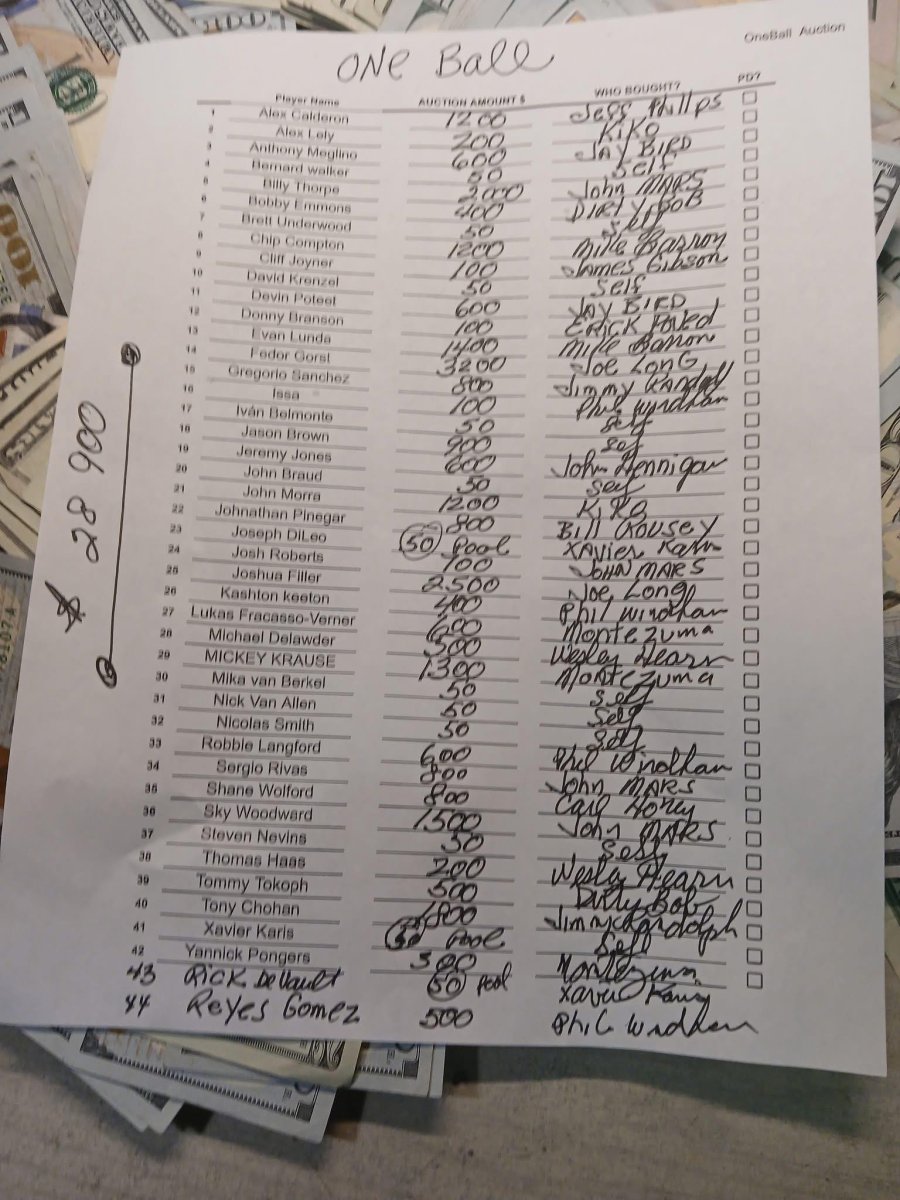 OneBall Auction
ONE Ball
Player Name AUCTION AMOUNT $ WHO BOUGHT? PD?
1 Alex Calderon 1200 Jeff Phillps
2 Alex Lely 200 KiKo
3 Anthony Meglino 600 JAY BIRD
4 Bernard walker 50 self
5 Billy Thorpe 2000 John MARS
6 Bobby Emmons 400 DIRTY BOB
7 Brett Underwood 50 self
8 Chip Compton 1200 Mike Barron
9 Cliff Joyner 100 James Gibson
10 David Krenzel 50 self
11 Devin Poteet 600 JAY BIRD
12 Donny Branson 100 ERICK
13 Evan Lunda 1400 Mike Barron
14 Fedor Gorst 3200 Joe LONG
15 Gregorio Sanchez 800 Jimmy
16 Issa 100 Phil Windham
17 Iván Belmonte 50 self
18 Jason Brown self
19 Jeremy Jones 600 John Hennigan
20 John Braud 50 self
21 John Morra 1200 KiKo
22 Johnathan Pinegar 800 Bill Rousey
23 Joseph DiLeo 50 Pool XAvier
24 Josh Roberts 100 JOHN MARS
25 Joshua Filler 2500 Joe Long
26 Kashton keeton 400 Phil Windham
27 Lukas Fracasso-Verner 600 Montezuma
28 Michael Delawder 500 Wesley Hearn
29 MICKEY KRAUSE 1300 Montezuma
30 Mika van Berkel 50 self
31 Nick Van Allen 50 Self
32 Nicolas Smith 50 Self
33 Robbie Langford 600 Phil Windham
34 Sergio Rivas 800 John MARS
35 Shane Wolford 800 Carl Honey
36 Sky Woodward 1500 John MARS
37 Steven Nevins 50 Self
38 Thomas Haas 200 Wesley Hearn
39 Tommy Tokoph 500 Dirty Bob
40 Tony Chohan 1800 Jimmy Randolph
41 Xavier Karis 50 Pool Self
42 Yannick Pongers Montezuma
43 Rick DeVault 50 pool Xavier
44 Reyes Gomez 500 Phil Windham
$ 28 900